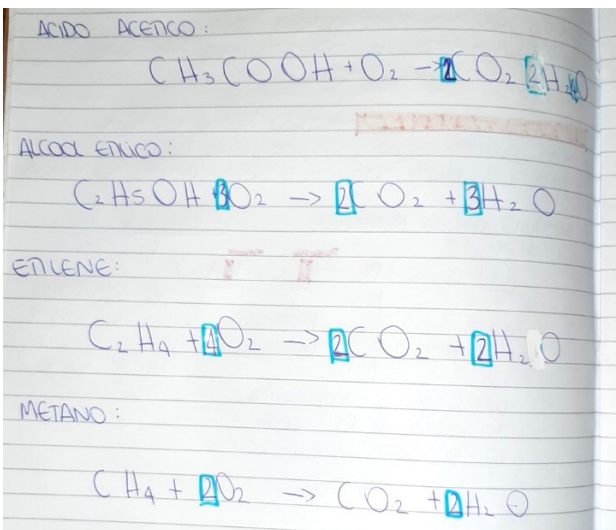 ACIDO ACETICO:
CH₃COOH + O₂ → 2CO₂ 2H₂O
ALCOOL ETILICO:
C₂H5OH 3O₂ → 2CO₂ + 3H₂O
ETILENE:
C₂H₄ + 4O₂ → 2CO₂ + 2H₂O
METANO:
CH₄ + 2O₂ → CO₂ + 2H₂O